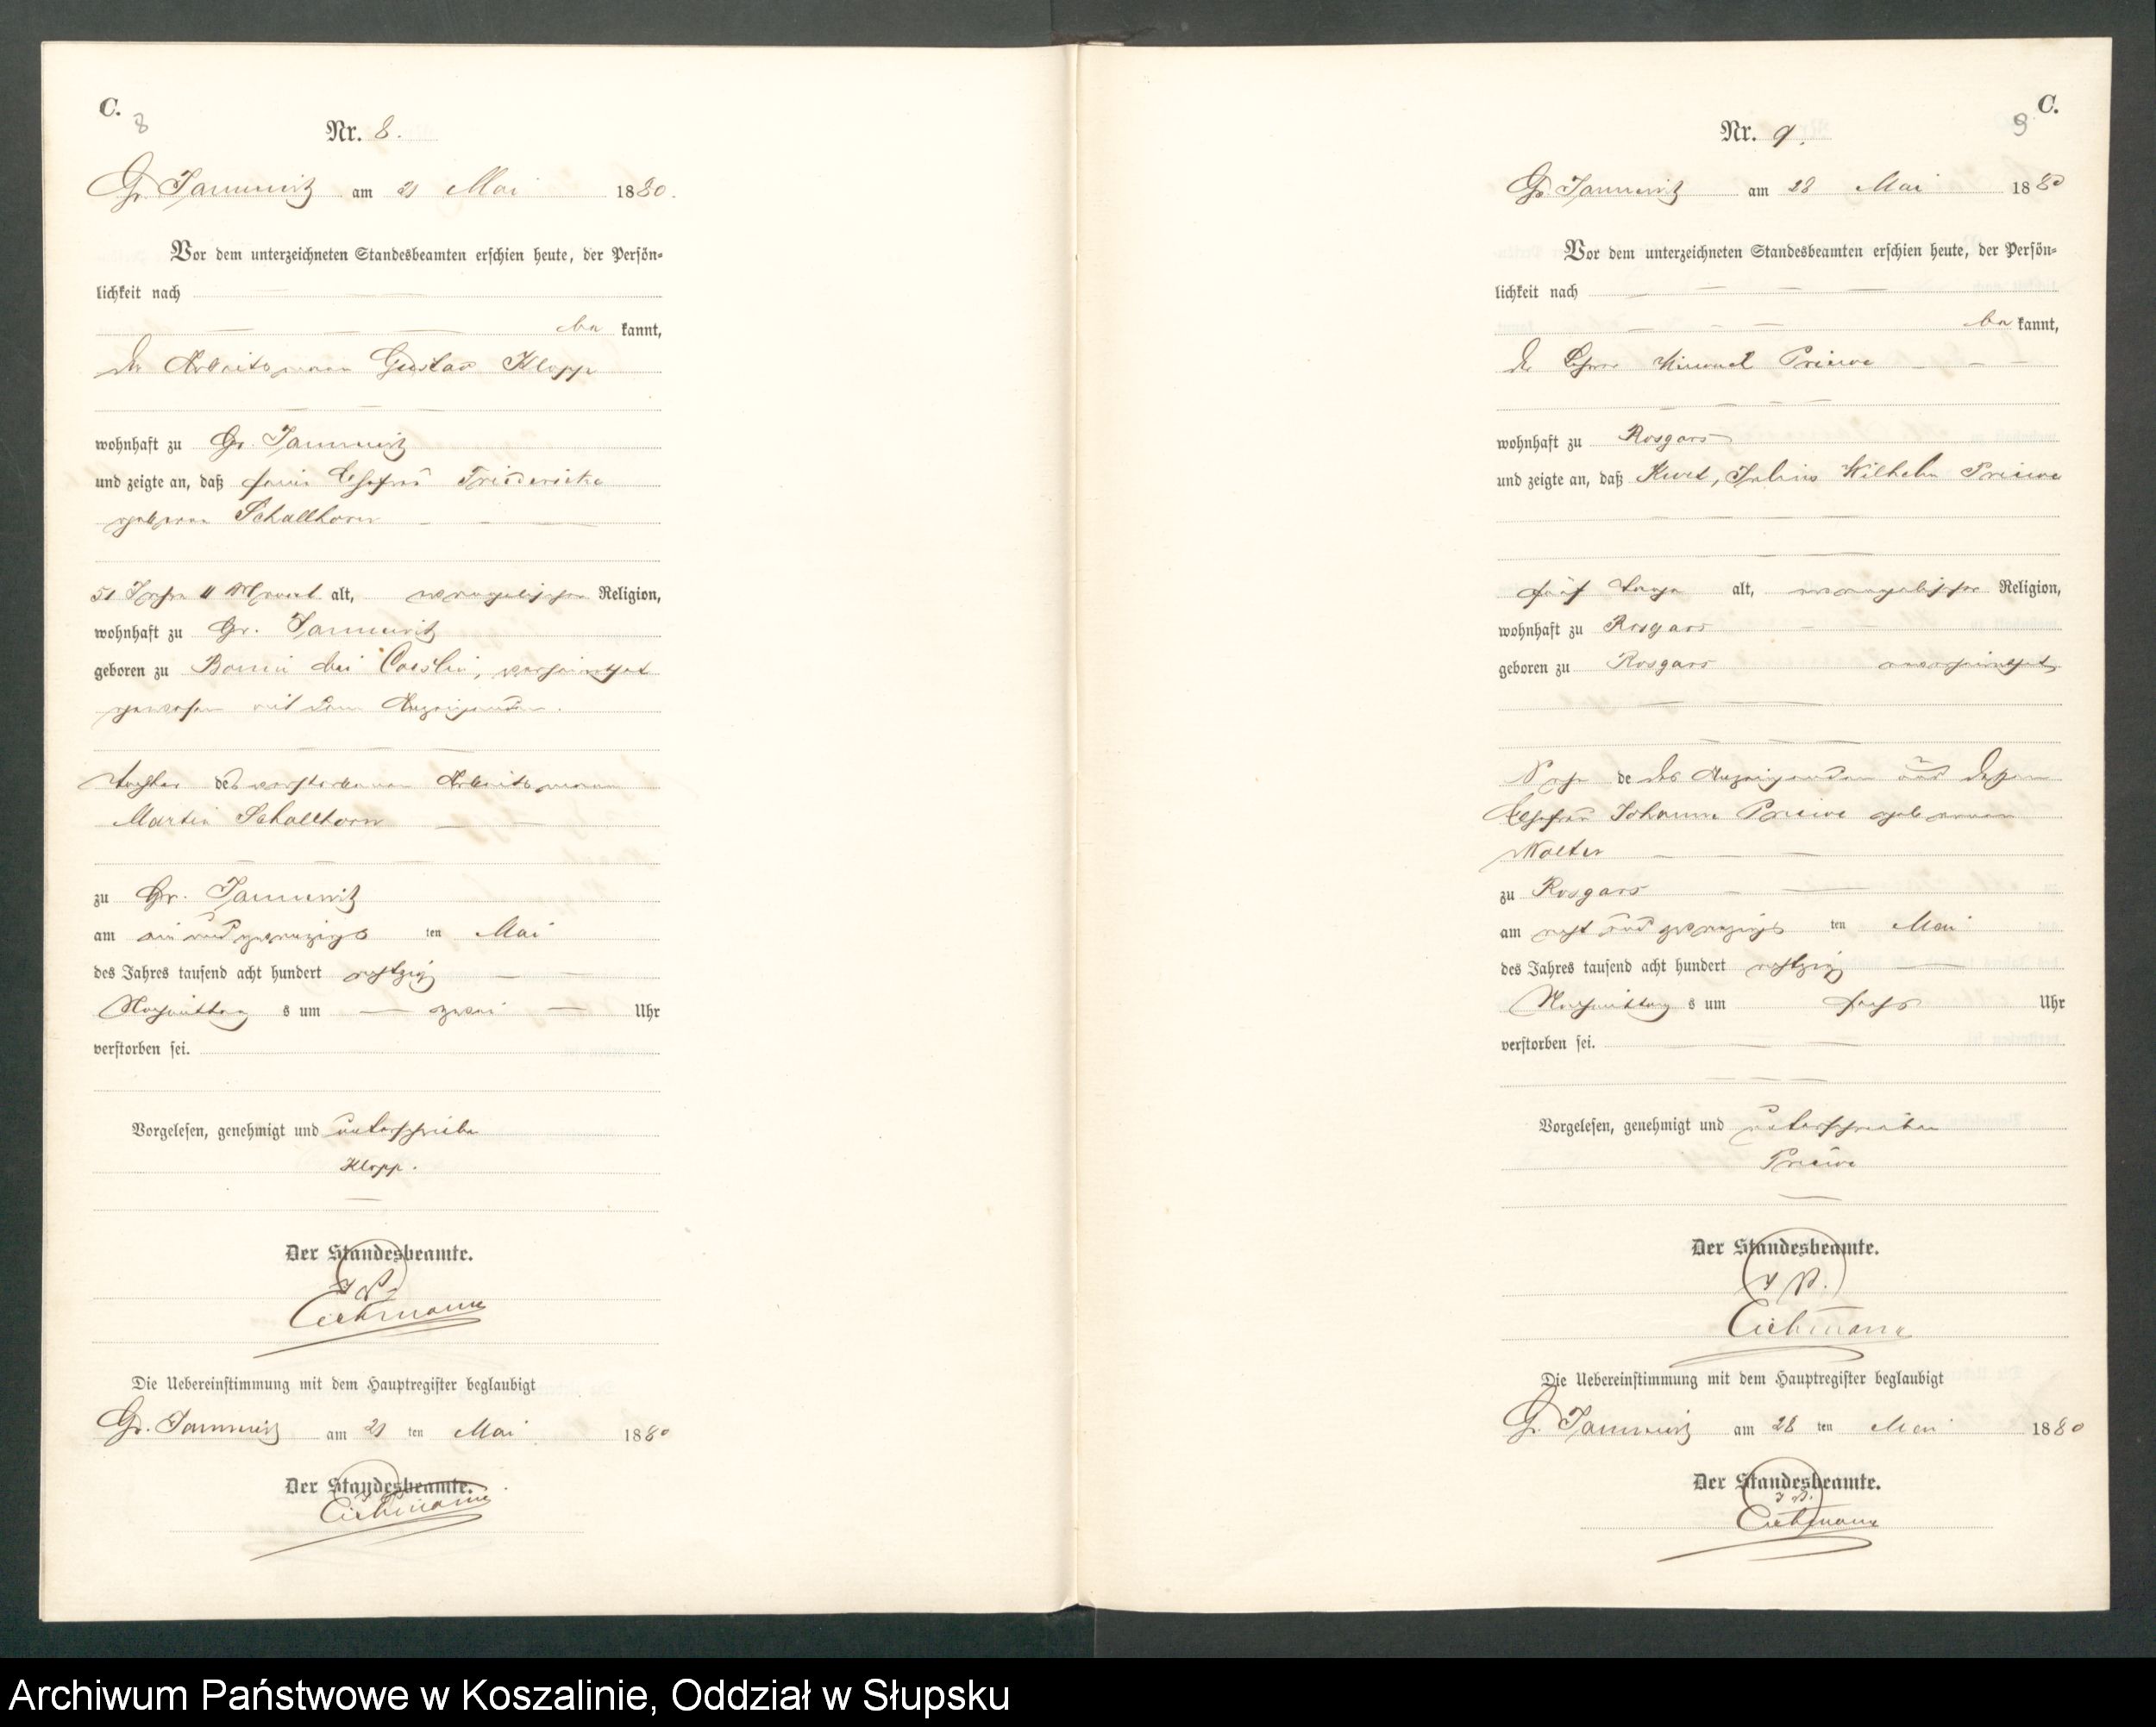 C.
8
Nr. 8.
Gr. Jannewitz am 21 Mai 1880.
Vor dem unterzeichneten Standesbeamten erschien heute, der Persön-
lichkeit nach
be kannt,
der Arbeitsmann Gustav Klopp
wohnhaft zu Gr. Jannewitz
und zeigte an, daß seine Ehefrau Friederike
geborene Schallhorn
51 Jahre 11 Monat alt, evangelischer Religion,
wohnhaft zu Gr. Jannewitz
geboren zu bei Coeslin, verheirathet
gewesen mit dem Anzeigenden.
Tochter des verstorbenen Arbeitsmann
Martin Schallhorn
zu Gr. Jannewitz
am ein und zwanzigs ten Mai
des Jahres tausend acht hundert achtzig
Nachmittag s um zwei Uhr
verstorben sei.
Vorgelesen, genehmigt und unterschrieben
Klopp.
Der Standesbeamte.
Eichmann
Die Uebereinstimmung mit dem Hauptregister beglaubigt
Gr. Jannewitz am 21 ten Mai 1880
Der Standesbeamte.
Eichmann
C.
9
Nr. 9.
Gr. Jannewitz am 28 Mai 1880
Vor dem unterzeichneten Standesbeamten erschien heute, der Persön-
lichkeit nach
be kannt,
der Priewe
wohnhaft zu Rosgars
und zeigte an, daß Kurt, Julius Wilhelm Priewe
fünf Tage alt, evangelischer Religion,
wohnhaft zu Rosgars
geboren zu Rosgars unverheirathet
Sohn de des Anzeigenden und dessen
Ehefrau Johanne Priewe geborenen
Wolter
zu Rosgars
am acht und zwanzigs ten Mai
des Jahres tausend acht hundert achtzig
Nachmittag s um sechs Uhr
verstorben sei.
Vorgelesen, genehmigt und unterschrieben
Priewe
Der Standesbeamte.
I V.
Eichmann
Die Uebereinstimmung mit dem Hauptregister beglaubigt
Gr. Jannewitz am 28 ten Mai 1880
Der Standesbeamte.
I V.
Eichmann
Archiwum Państwowe w Koszalinie, Oddział w Słupsku